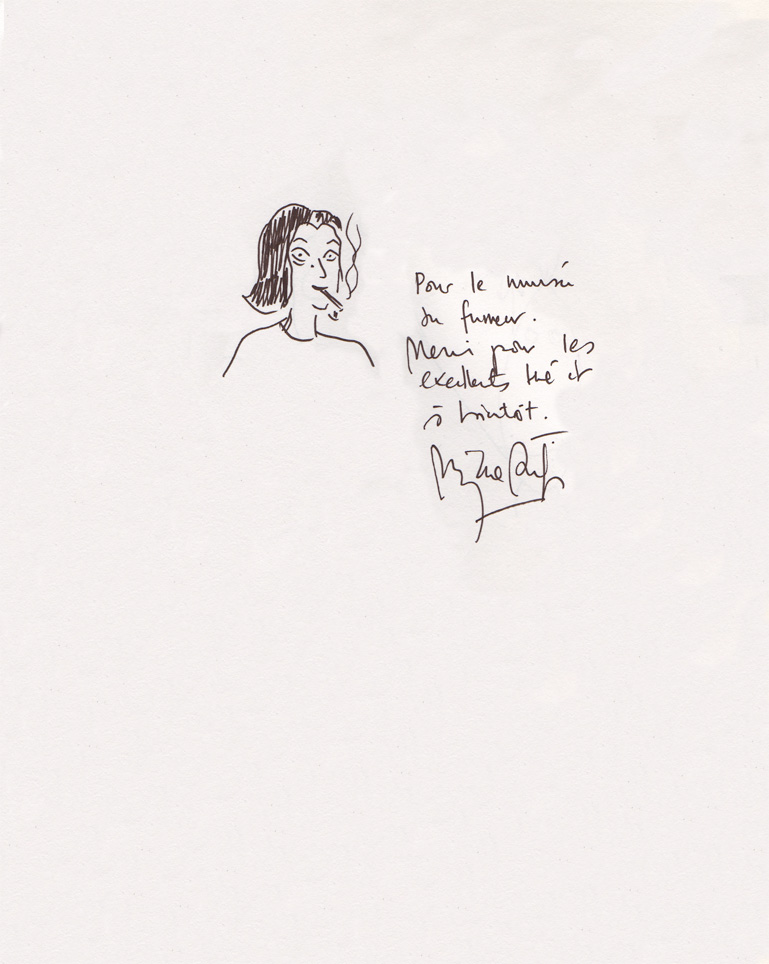 Pour le musée
du fumeur.
Merci pour les
excellents thé et
à bientôt.